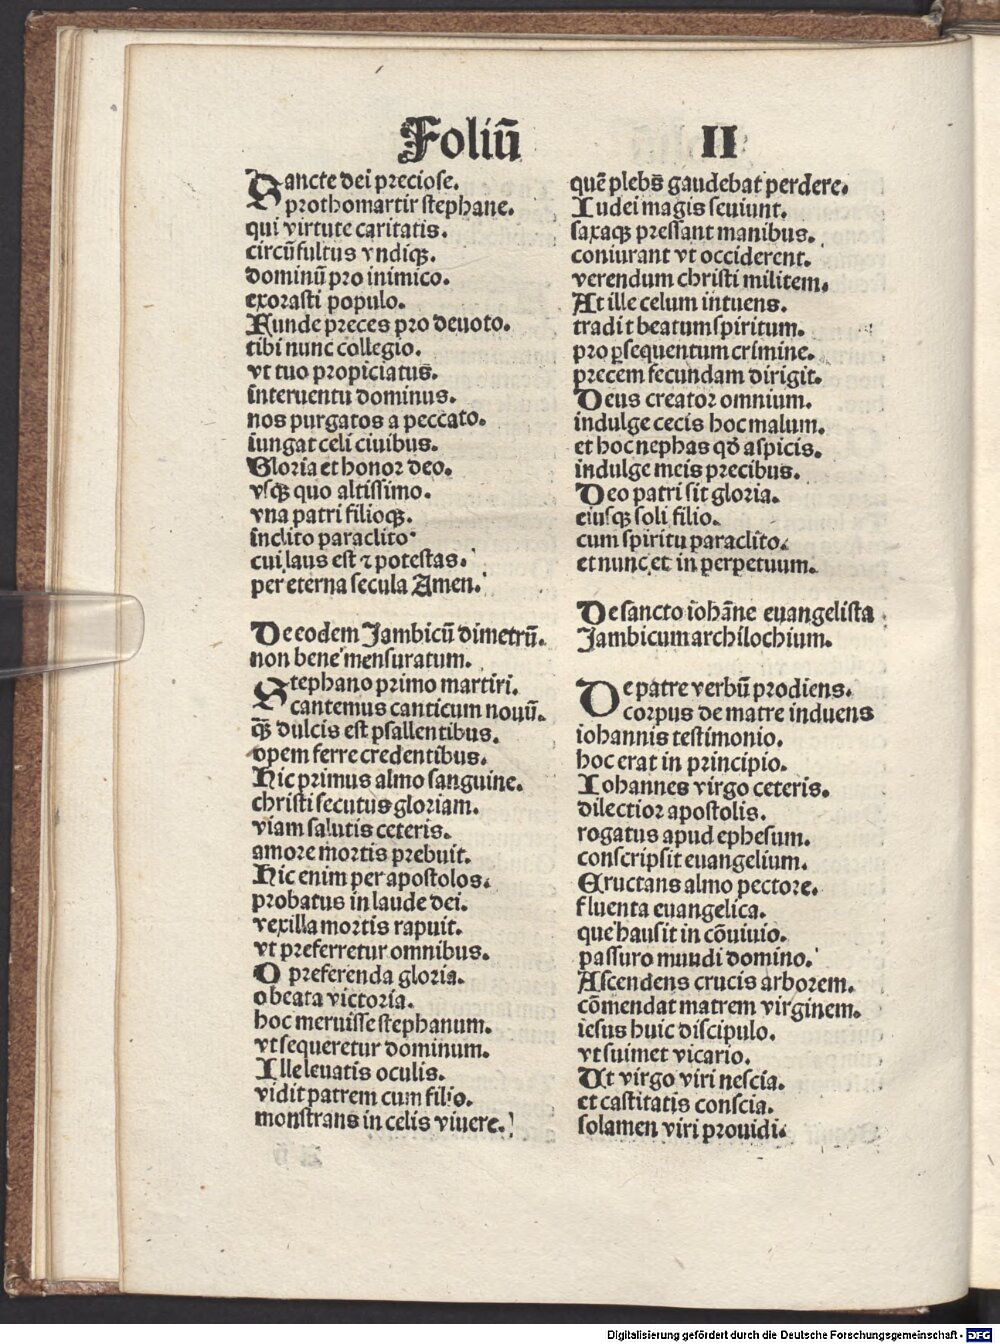 Foliū II
Sancte dei preciose.
prothomartir stephane.
qui virtute caritatis.
circūfultus vndiqꝫ.
dominū pro inimico.
exorasti populo.
Funde preces pro deuoto.
tibi nunc collegio.
vt tuo propiciatus.
interuentu dominus.
nos purgatos a peccato.
iungat celi ciuibus.
Gloria et honor deo.
vsqꝫ quo altissimo.
vna patri filioqꝫ.
inclito paraclito.
cui laus est ⁊ potestas.
per eterna secula Amen.
De eodem Jambicū dimetrū.
non bene mensuratum.
Stephano primo martiri.
cantemus canticum nouū.
qꝫ dulcis est psallentibus.
opem ferre credentibus.
Hic primus almo sanguine.
christi secutus gloriam.
viam salutis ceteris.
amore mortis prebuit.
Hic enim per apostolos.
probatus in laude dei.
vexilla mortis rapuit.
vt preferretur omnibus.
O preferenda gloria.
o beata victoria.
hoc meruisse stephanum.
vt sequeretur dominum.
Ille leuatis oculis.
vidit patrem cum filio.
monstrans in celis viuere.
quē plebs gaudebat perdere.
Iudei magis seuiunt.
saxaqꝫ pressant manibus.
coniurant vt occiderent.
verendum christi militem.
At ille celum intuens.
tradit beatum spiritum.
pro ꝑsequentum crimine.
precem fecundam dirigit.
Deus creator omnium.
indulge cecis hoc malum.
et hoc nephas qđ aspicis.
indulge meis precibus.
Deo patri sit gloria.
eiusqꝫ soli filio.
cum spiritu paraclito.
et nunc et in perpetuum.
De sancto iohāne euangelista
Jambicum archilochium.
De patre verbū prodiens.
corpus de matre induens
iohannis testimonio.
hoc erat in principio.
Iohannes virgo ceteris.
dilectior apostolis.
rogatus apud ephesum.
conscripsit euangelium.
Eructans almo pectore.
fluenta euangelica.
que hausit in cōuiuio.
passuro mundi domino.
Ascendens crucis arborem.
cōmendat matrem virginem.
iesus huic discipulo.
vt suimet vicario.
Ut virgo viri nescia.
et castitatis conscia.
solamen viri prouidi.
Digitalisierung gefördert durch die Deutsche Forschungsgemeinschaft - DFG